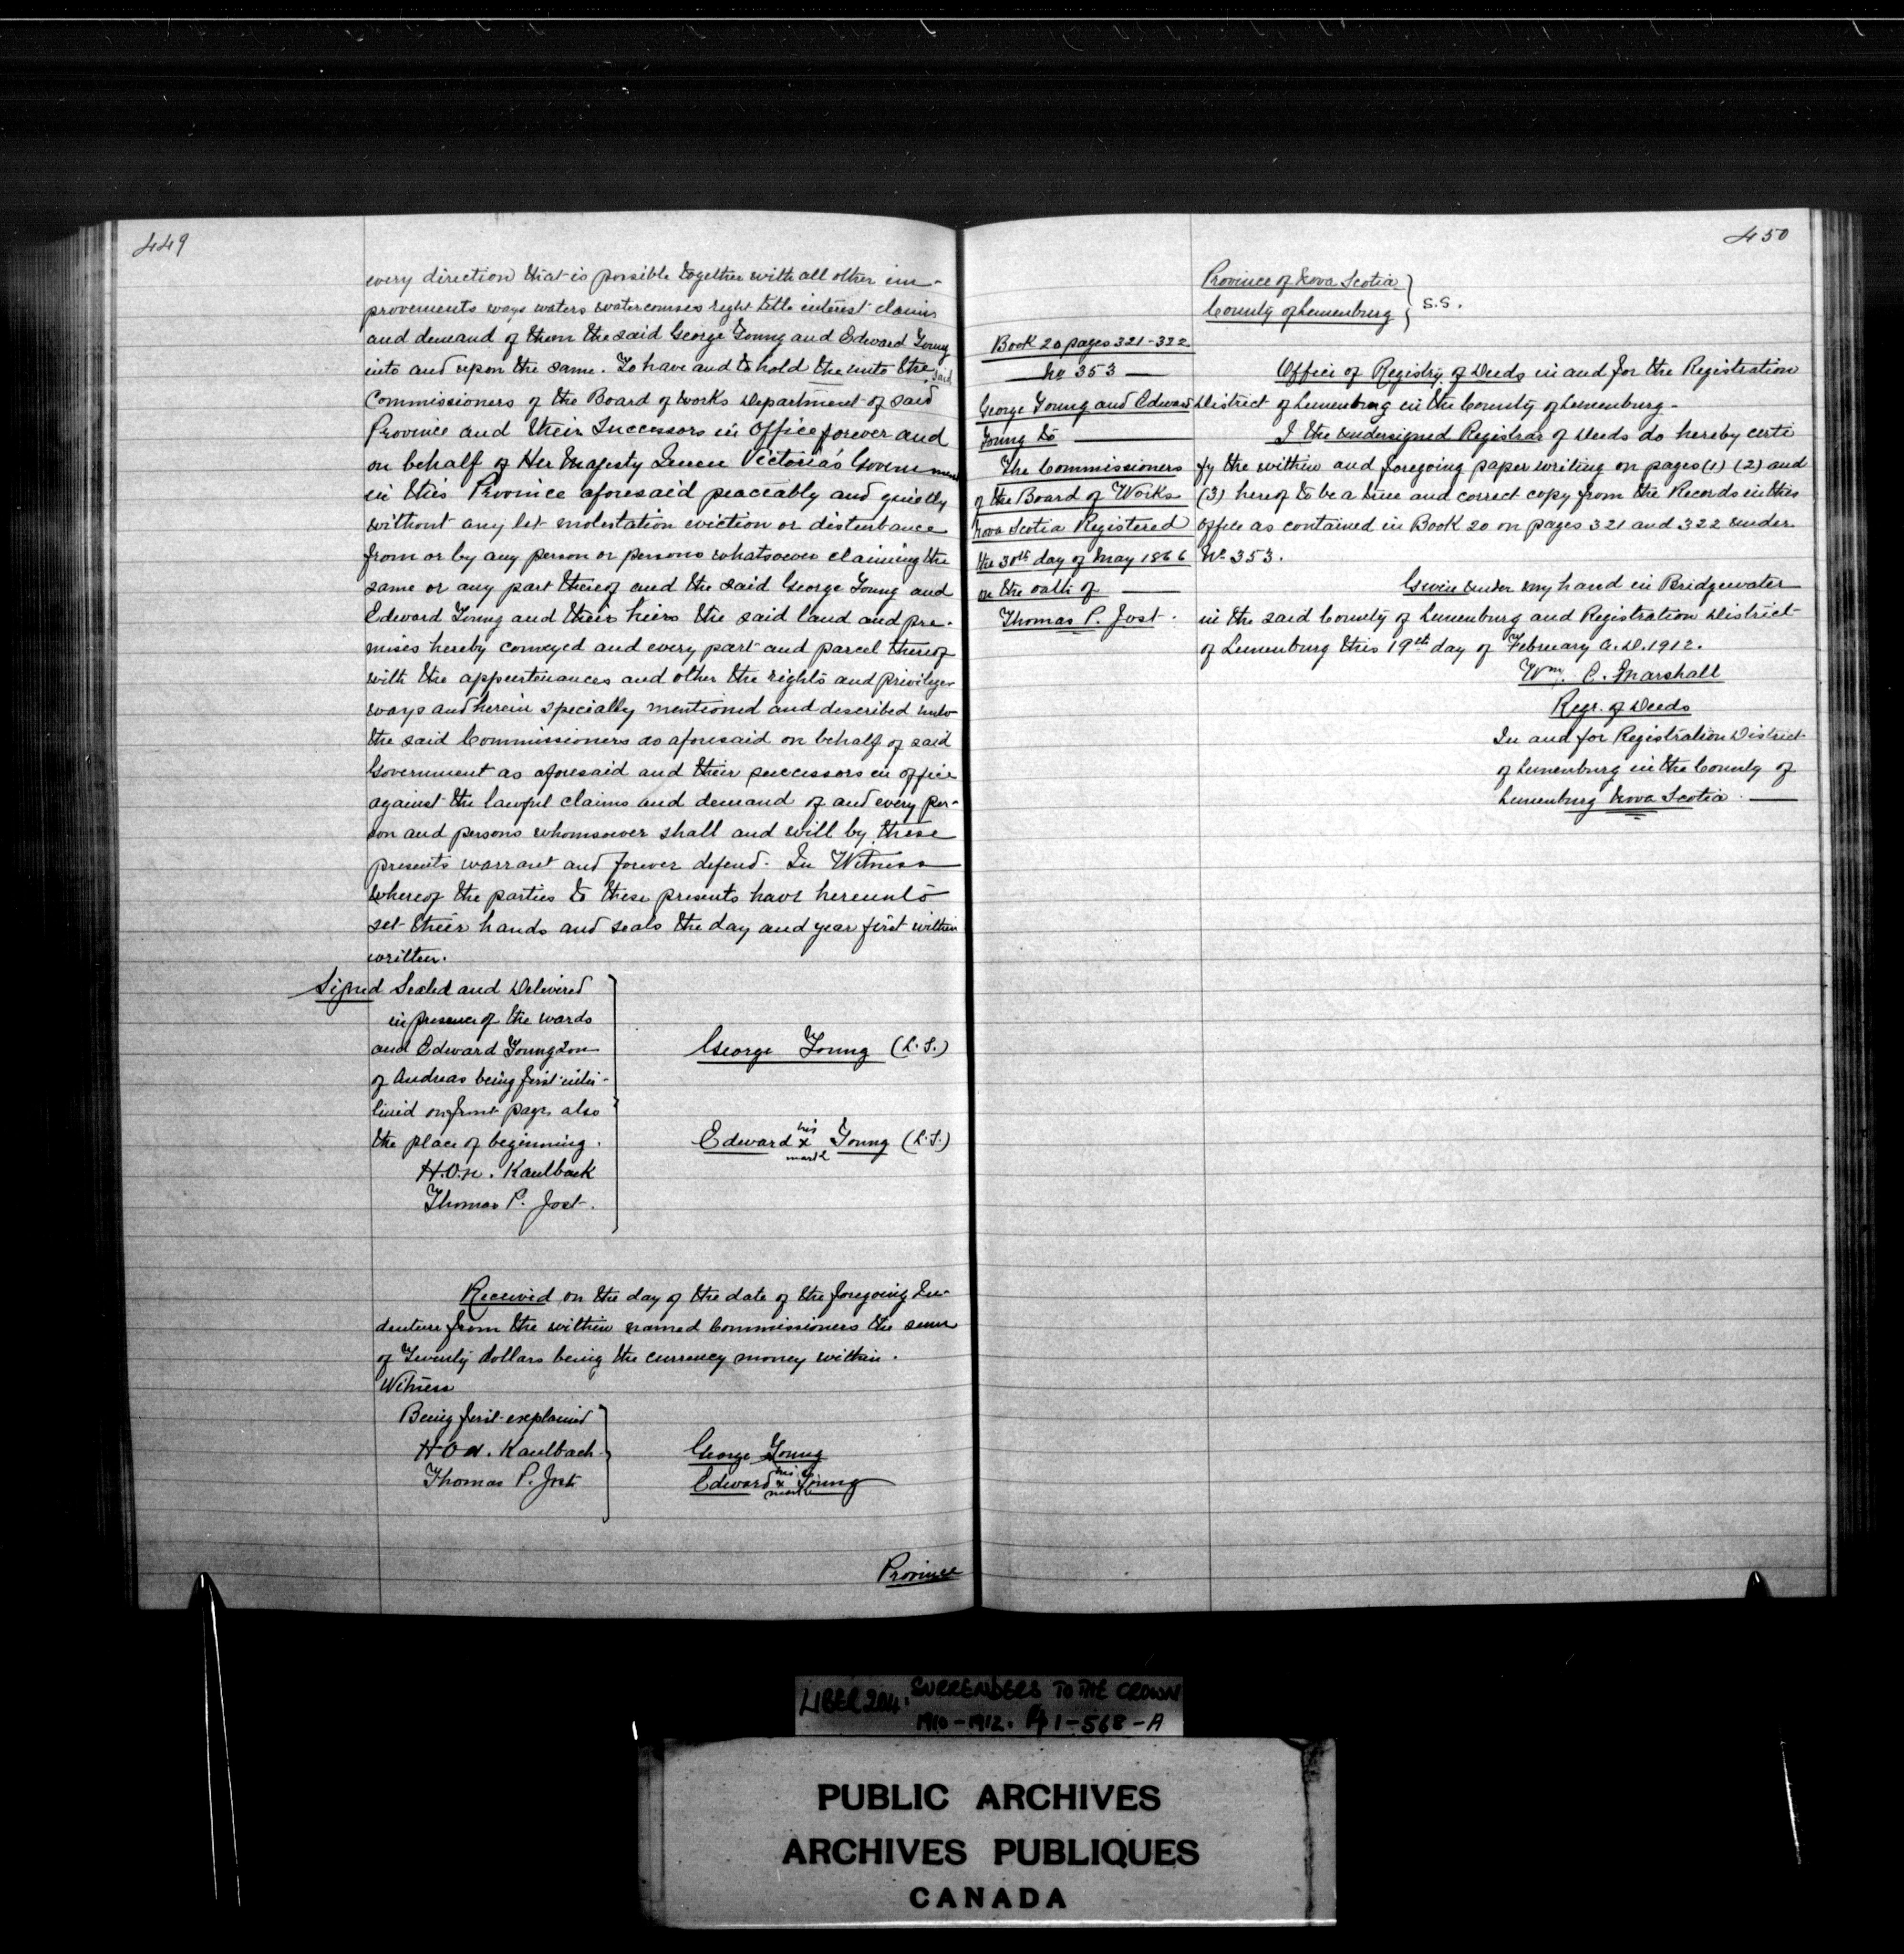 449
every direction that is possible together with all other im-
provements ways waters watercourses right title interest claims
and demand of them the said George Young and Edward Young
into and upon the same. To have and to hold the unto the said
Commissioners of the Board of Works Department of said
Province and their Successors in Office forever and
on behalf of Her Majesty Queen Victoria's Government
in this Province aforesaid peaceably and quietly
without any let molestation eviction or disturbance
from or by any person or persons whatsoever claiming the
same or any part thereof and the said George Young and
Edward Young and their heirs the said land and pre-
mises hereby conveyed and every part and parcel thereof
with the appurtenances and other the rights and privileges
ways and herein specially mentioned and described unto
the said Commissioners as aforesaid on behalf of said
Government as aforesaid and their successors in office
against the lawful claims and demand of and every per-
son and persons whomsoever shall and will by these
presents warrant and forever defend. In Witness
whereof the parties to these presents have hereunto
set their hands and seals the day and year first within
written.
Signed Sealed and Delivered
in presence of the words
and Edward Young son
of Andreas being first inter-
lined on front page also
the place of beginning.
H.O.N. Kaulback
Thomas P. Jost.
George Young (L.S.)
his
Edward x Young (L.S.)
mark
Received on the day of the date of the foregoing In-
denture from the within named Commissioners the sum
of Twenty dollars being the currency money within.
Witness
Being first explained
H O N. Kaulbach
Thomas P. Jost
George Young
his
Edward x Young
mark
Province
450
Province of Nova Scotia
County of Lunenburg } S.S.
Book 20 pages 321-322
No 353
George Young and Edward
Young to
The Commissioners
of the Board of Works
Nova Scotia Registered
the 30th day of May 1866
on the oath of
Thomas P. Jost.
Office of Registry of Deeds in and for the Registration
District of Lunenburg in the County of Lunenburg.
I the undersigned Registrar of Deeds do hereby certi
fy the within and foregoing paper writing on pages (1) (2) and
(3) hereof to be a true and correct copy from the Records in this
office as contained in Book 20 on pages 321 and 322 under
No 353.
Given under my hand in Bridgewater
in the said County of Lunenburg and Registration District
of Lunenburg this 19th day of February A.D. 1912.
Wm. C. Marshall
Regr. of Deeds
In and for Registration District
of Lunenburg in the County of
Lunenburg Nova Scotia.
LIBER 204. SURRENDERS TO THE CROWN
1910-1912. P1-568-A
PUBLIC ARCHIVES
ARCHIVES PUBLIQUES
CANADA